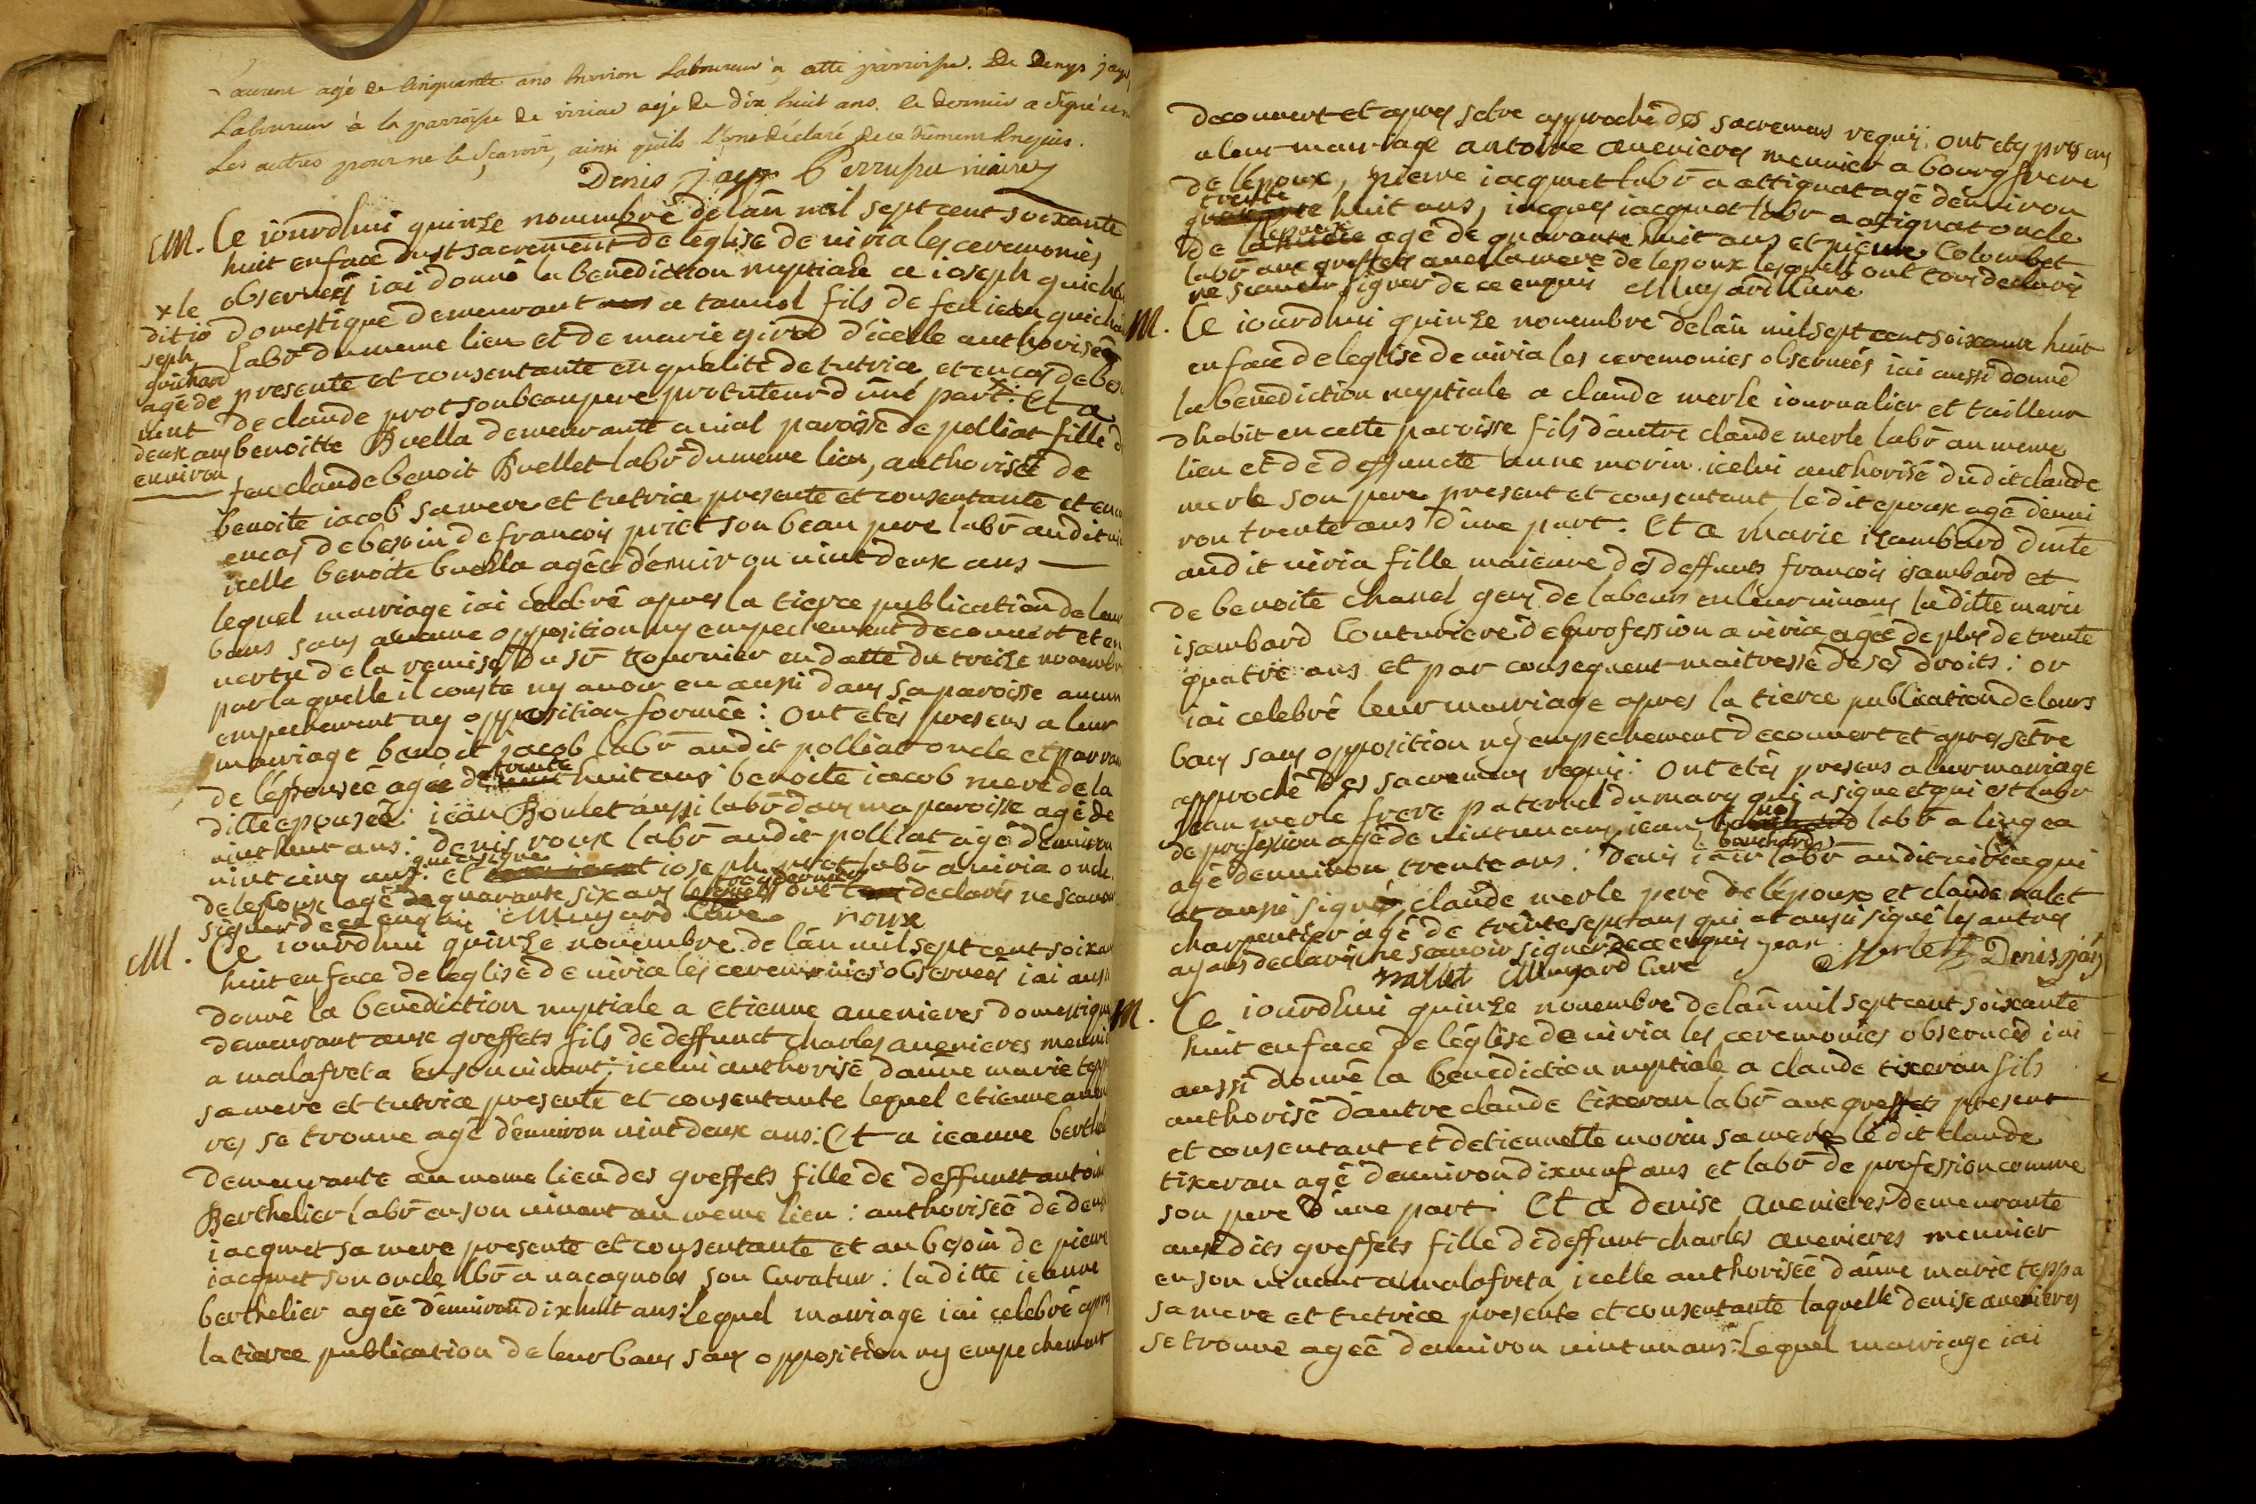 agé de cinquante ans environ Laboureur à cette parroisse. De Denys jayr
Laboureur à la parroisse de viriac agé de dix huit ans. le dernier a signé
Les autres pour ne le sçavoir, ainsi qu'ils l'ont déclaré de ce dûment Enquis.
Denis jayr Perruche vicaire
M. Ce iourdhui quinze novembre de lân mil sept cent soixante
huit en face du st sacrement de leglise de viria les ceremonies
observeés iai donné la benediction nuptiale a ioseph guichar
domestique demeurant a tanuol fils de feu iean guichar
labr du meme lieu et de marie girod d'icelle authorisé
presente et consentante en qualité de tutrice et en cas de beso
de claude prot son beau pere protuteur d'une part: Et a
benoitte Buella demeurante a vial paroisse de polliat fille d
feu claude benoit Buellet labr du meme lieu, authorisée de
benoite iacob sa mere et tutrice presente et consentante et en
en cas de besoin de francois priet son beau pere labr audit
icelle benoite buella agée d'environ vint deux ans
x le
dit io
seph
guichard
agé de
vint
deux ans
environ
lequel marriage iai celebré apres la tierce publication de leur
bans sans aucune opposition ny empechement decouvert et en
vertu de la remise du sr tournier en datte du treize novembr
par laquelle il conste ny avoir eu aussi dans sa paroisse aucun
empechement ny opposition formée: Ont etés presens a leur
marriage benoit jacob labr audit polliat oncle et parrain
de lepousée agée de trente huit ans benoite iacob mere de la
ditte epousée: iean Boulet aussi labr dans ma paroisse agé de
vint huit ans: denis roux labr audit polliat agé denviron
vint cinq ans qui a signé: Et ioseph prot labr a viria oncle
de lepoux agé de quarante six ans ont declarés ne scavoir
signer de ce enquis Muyard Curé roux
M. Ce iourdhui quinze novembre de lân mil sept cent soixan
huit en face de leglise de viria les ceremonies observeés iai aussi
donné la benediction nuptiale a etienne avenieres domestique
demeurant aux greffets fils de deffunct charles avenieres meunie
a malafreta en son vivant: icelui authorisé d'anne marie tepp
sa mere et tutrice presente et consentante lequel etienne aveni
res se trouve agé d'environ vint deux ans: Et a ieanne berthel
demeurante au meme lieu des greffets fille de deffunct antoin
Berthelier labr en son vivant au meme lieu: authorisée de deni
iacquet sa mere presente et consentante et au besoin de pierre
iacquet son oncle labr a vacagnoles son curateur: la ditte ieanne
berthelier agée d'environ dix huit ans: lequel marriage iai celebré apres
la tierce publication de leur bans sans opposition ny empechement
decouvert et apres setre approché des sacremens requis. Ont etés presens
a leur mariage antoine avenieres meunier a bourg frere
de lépoux, pierre iacquet labr a attignat agé denviron
trente huit ans, iacques iacquet labr a attignat oncle
de lepouse agé de quarante huit ans et pierre Colombet
labr aux greffets avec la mere de lepoux lesquels ont tous declarés
ne scavoir signer de ce enquis Muyard Curé
M. Ce iourdhui quinze novembre de lân mil sept cent soixante huit
en face de leglise de viria les ceremonies observeés iai aussi donné
la benediction nuptiale a claude merle iournalier et tailleur
d'habit en cette parroisse fils d'autre claude merle labr au meme
lieu et de deffuncte anne morin. icelui authorisé du dit claude
merle son pere present et consentant, le dit epoux agé denvi
ron trente ans d'une part. Et a marie isambard ditte
audit viria fille maieure des deffunts francois isambard et
de benoite chanel gens de labeurs en leur vivans la ditte marie
isambard Couturiere de profession a viria, agée de plus de trente
quatre ans et par consequent maitresse de ses droits: or
iai celebré leur marriage apres la tierce publication de leurs
bans sans opposition ny empechement decouvert et apres setre
approché des sacremens requis: Ont etés presens a leur mariage
Jean merle frere paternel du mary qui a signé et qui est labr
de profession agé de vint un ans, iean labr a lingea
bouchard
agé denviron trente ans: Denis iair labr audit viria qui
at aussi signé claude merle pere de lépoux et claude malet
charpentier agé de trente sept ans qui at aussi signé les autres
ayans declarés ne scavoir signer de ce enquis jean Merle Denis jair
mallet Muyard Curé
M. Ce iourdhui quinze novembre de lân mil sept cent soixante
huit en face de léglise de viria les ceremonies observeés iai
aussi donné la benediction nuptiale a claude tixeran fils
authorisé d'autre claude tixeran labr aux greffets present
et consentant et detiennette morin sa mere le dit claude
tixeran agé denviron dixneuf ans et labr de profession comme
son pere d'une part. Et a denise avenieres demeurante
ausdits greffets fille dedeffunt charles avenieres meunier
en son vivant a malafreta, icelle authorisée d'anne marie teppa
sa mere et tutrice presente et consentante laquelle denise avenieres
se trouve agée denviron vint un ans: Lequel marriage iai